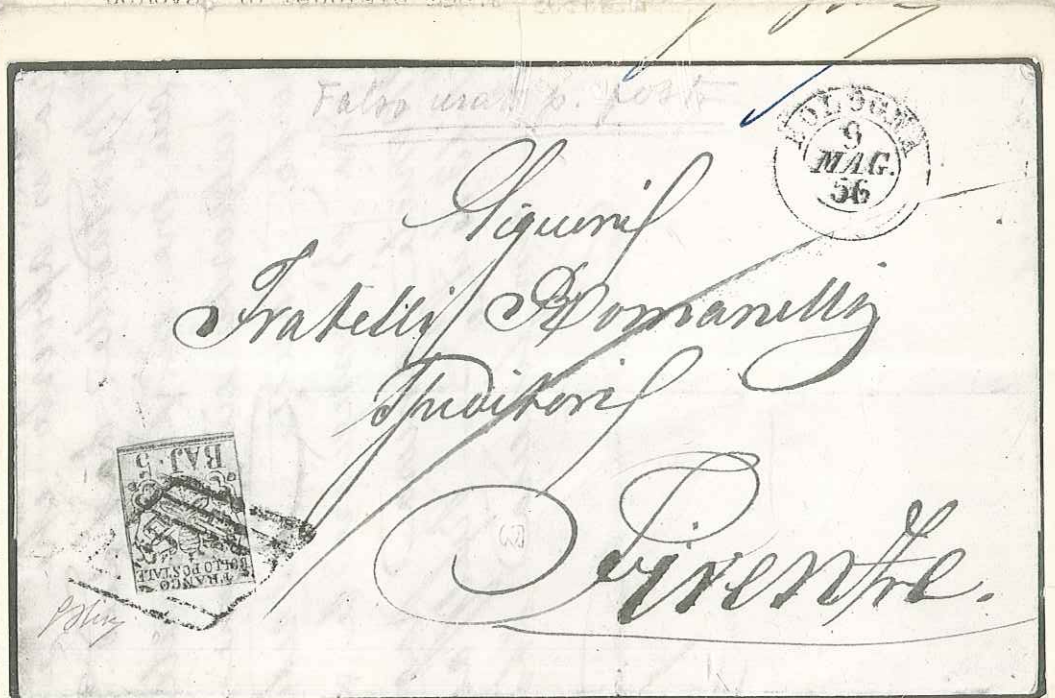 Falso usato p. posta
BOLOGNA
9
MAG.
56
Signori
Fratelli Romanelli
Firenze.
BAJ. 5
FRANCO
BOLLO POSTALE